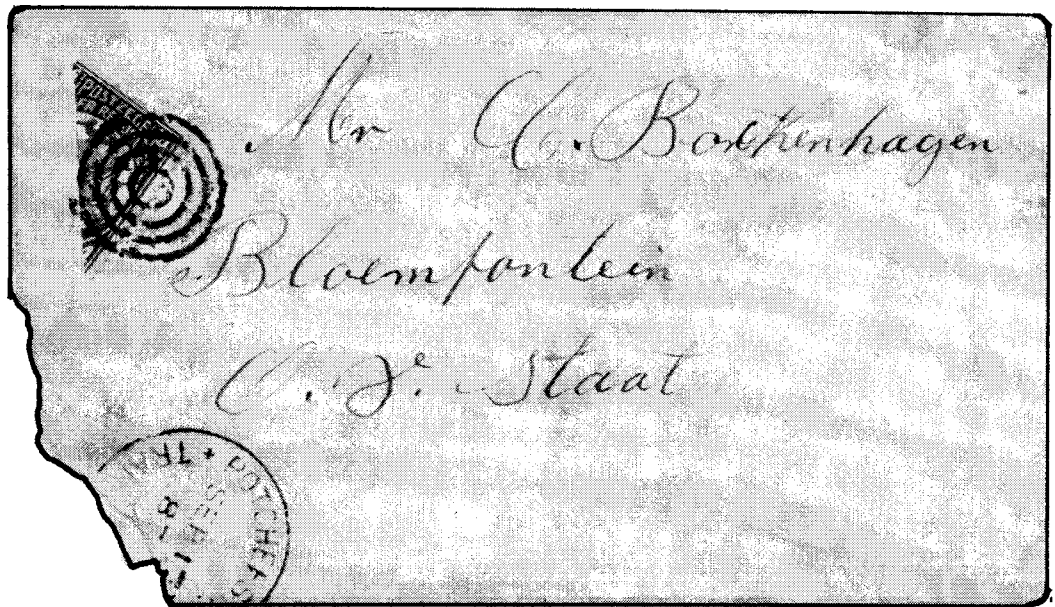 POSTZEGEL
Mr C. Borckenhagen
Bloemfontein
O. V. Staat
TRA • POTCHEFS
SEP